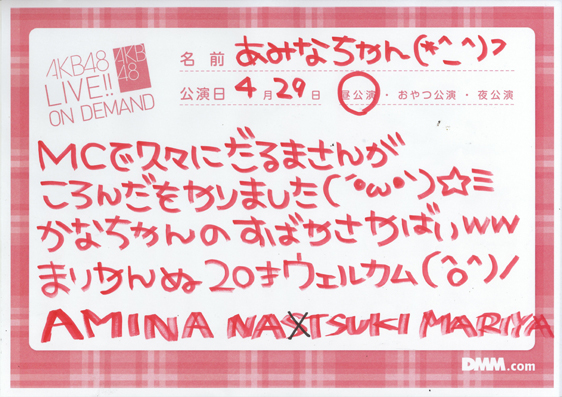 AKB48
LIVE!!
ON DEMAND
AKB
48
名前 あみなちゃん(*^^)つ
公演日 4月29日 昼公演・おやつ公演・夜公演
MCで久々にだるまさんが
ころんだをやりました(´・ω・`)☆ミ
かなちゃんのすばやさやばいww
まりやんぬ20才ウェルカム(^o^)/
AMINA NASTSUKI MARIYA
DMM.com